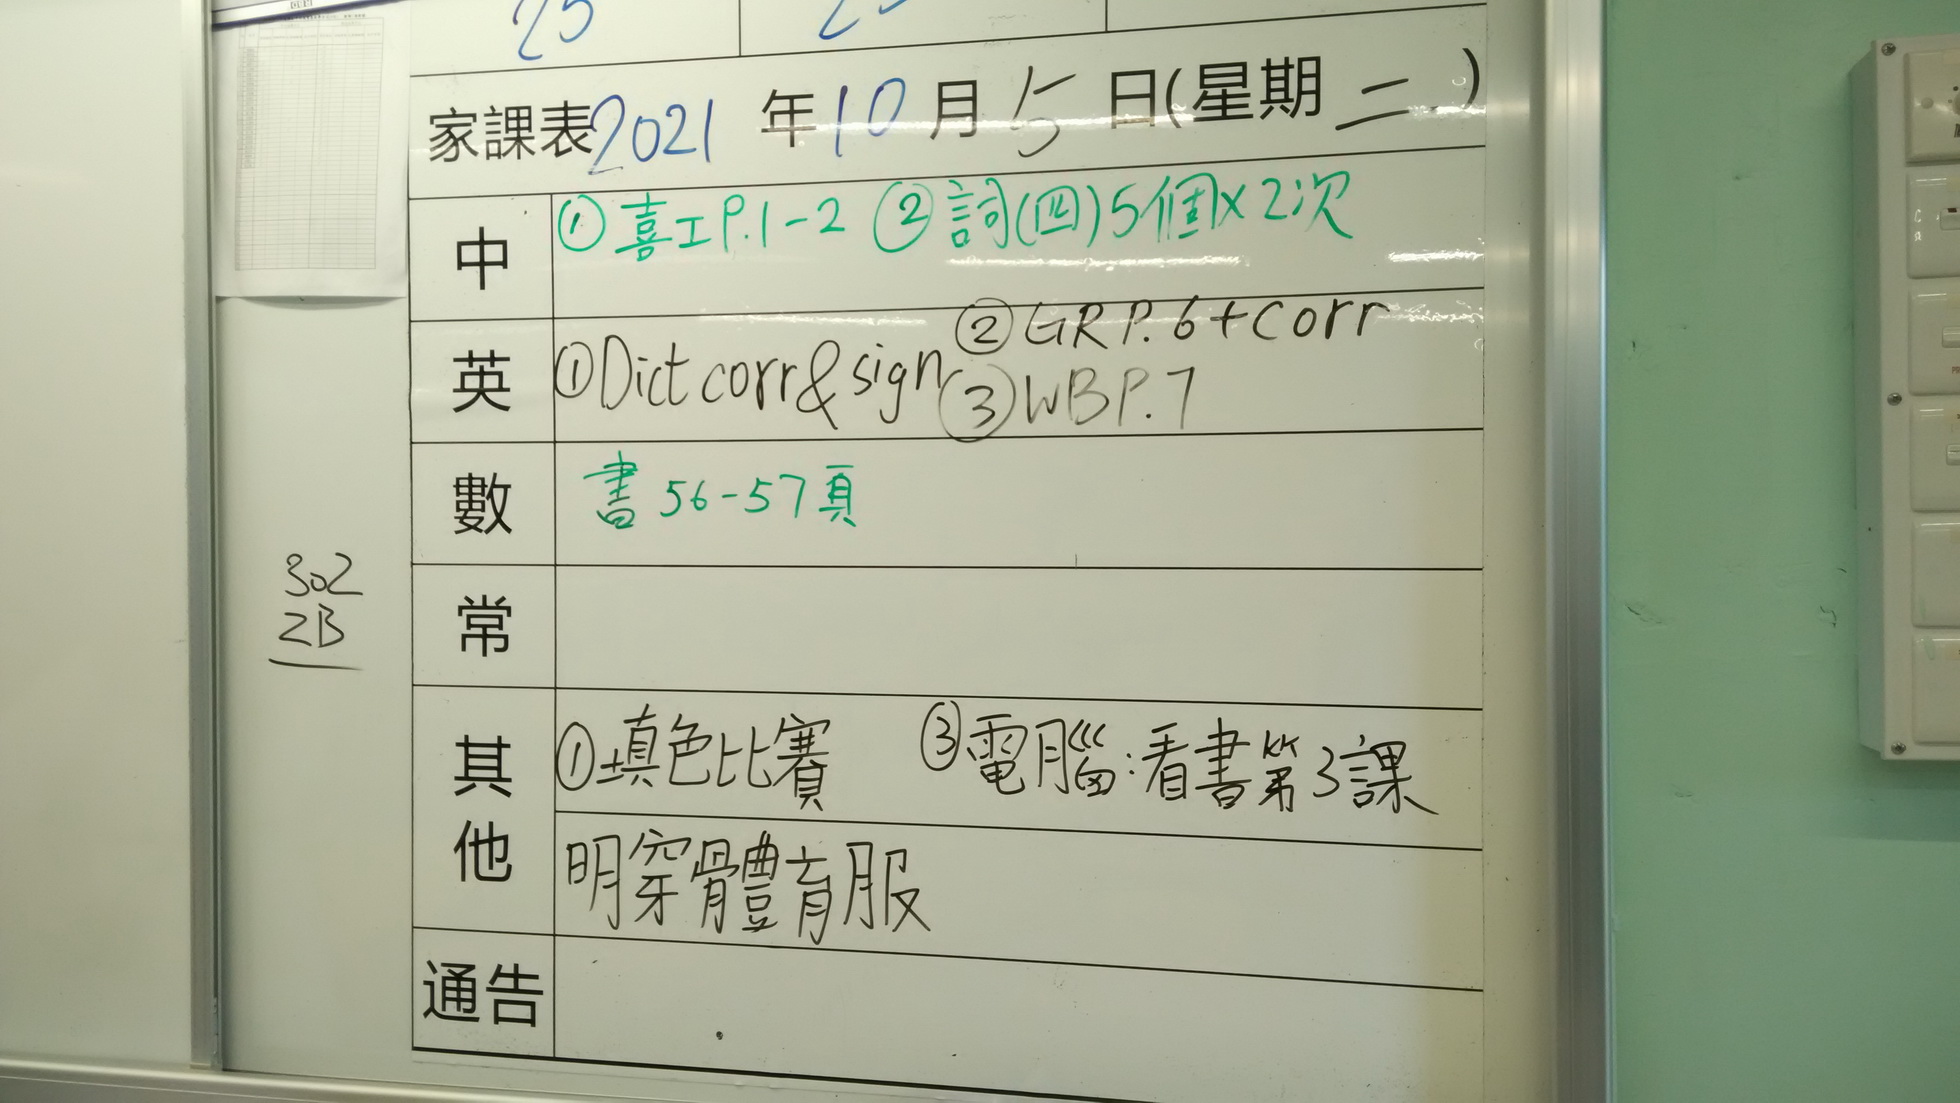 25
家課表2021年10月5日(星期二)
中 ①喜工P.1-2 ②詞(四)5個x2次
英 ①Dict corr & sign ②GR P.6+corr
③WB P.7
數 書56-57頁
常
302
2B
其他 ①填色比賽 ③電腦:看書第3課
明穿體育服
通告